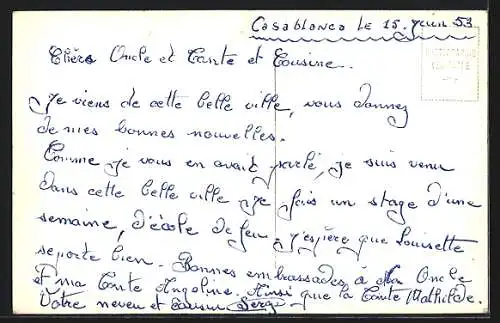 Casablanca le 15. Juin 53
Chèrs Oncle et Tante et Cousine.
Je viens de cette belle ville, vous donnez
de mes bonnes nouvelles.
Comme je vous en avait parlé, je suis venu
dans cette belle ville, je fais un stage d'une
semaine, d'école de feu, j'espère que Louisette
se porte bien. Bonnes embrassades à Oncle
et ma Tante Angoline. Ainsi que la Tante Mathilde.
Votre neveu et cousin Serge